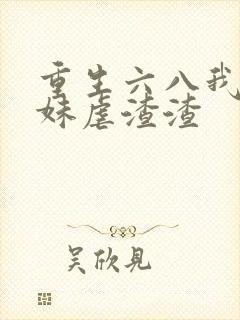 重生六八我
妹虐渣渣
吴欣見